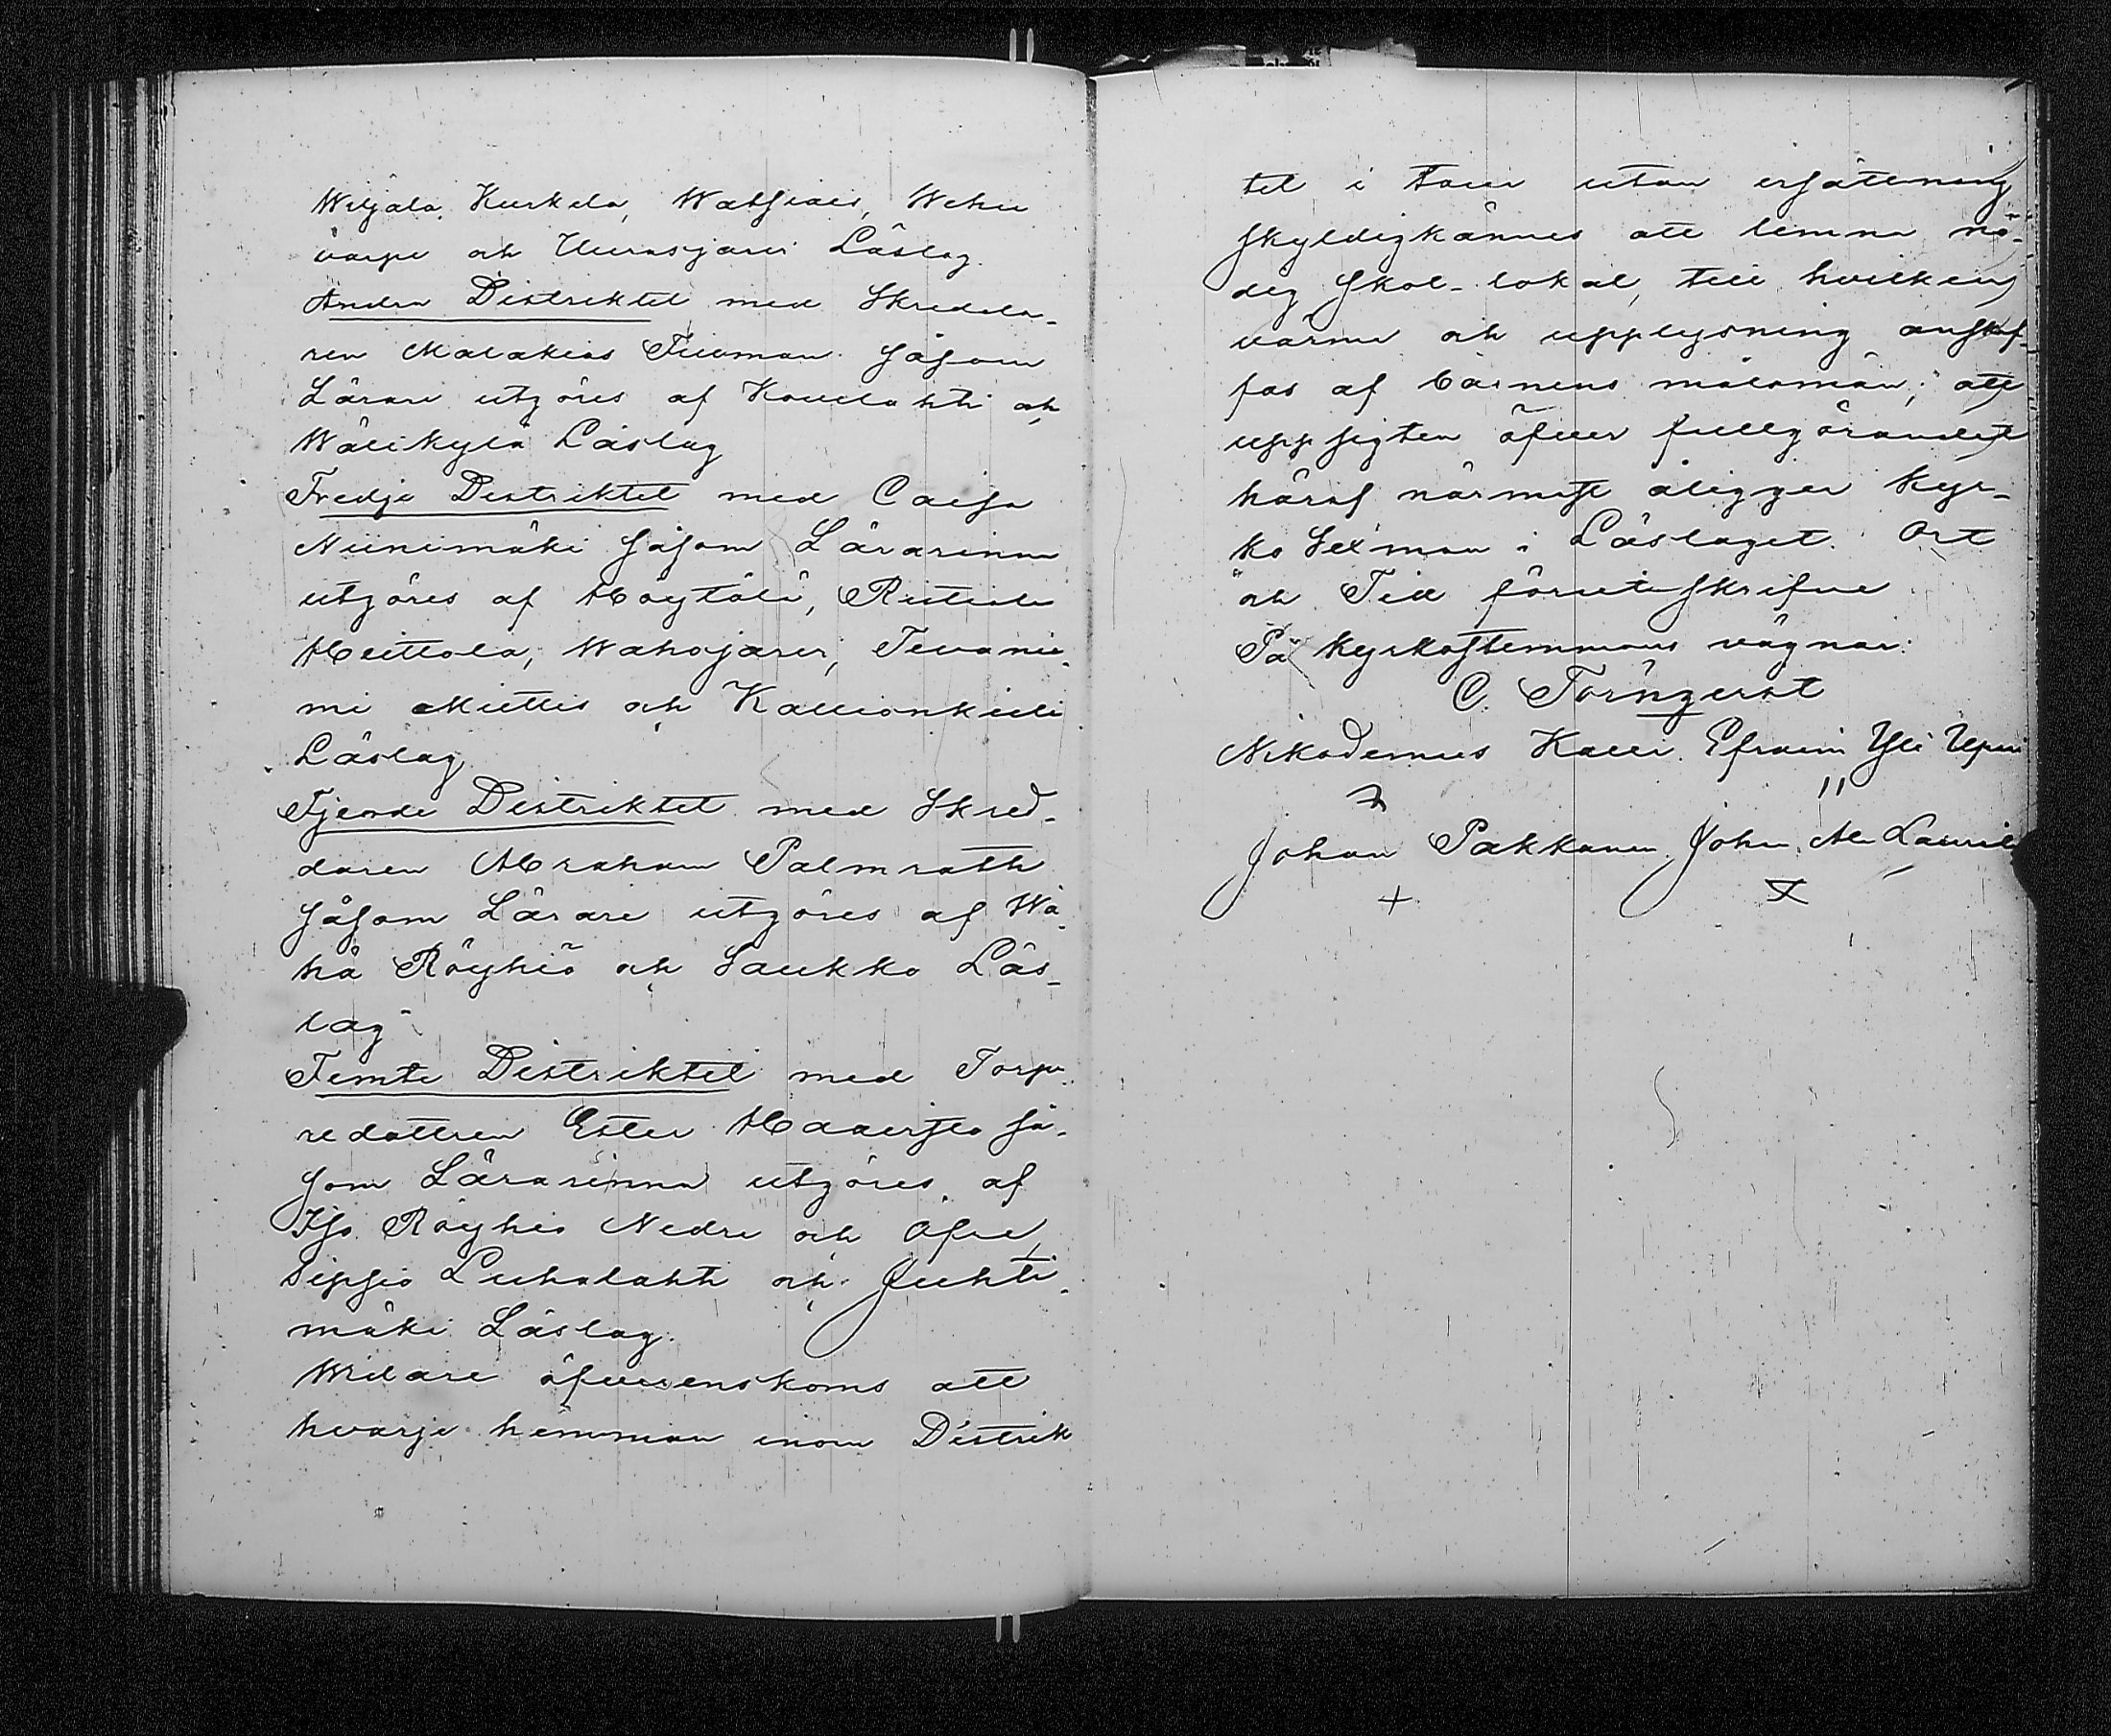 Wiljala, Kurkela, Watsiais, Wehu
varpe och Uurasjärvi Läslag.
Andra Distriktet med Skredda-
ren Malakias Tuoman såsom
Lärare utgöres af Kouvelahti och
Wälikylä Läslag
Tredje Distriktet med Caisa
Niinimäki såsom Lärarinna
utgöres af Höytölä, Riitiala
Heittola, Wahojärvi, Tevanie-
mi Miettis och Kallionkieli
Läslag.
Fjerde Distriktet med Skred-
daren Abraham Palmroth
såsom Lärare utgöres af Wä-
hä Röyhiö och Saukko Läs-
lag
Femte Distriktet med Torpa-
redottren Ester Haaristo så-
som Lärarinna utgöres af
Iso Röyhiö Nedre och Öfre
Sipsiö Luhalahti och Juhti-
mäki Läslag.
Widare öfverenskoms att
hvarje hemman inom Distrik
tet i tour utan ersättning
skyldigkännes att lemna nö-
dig skol-lokal, till hvilken
värme och upplysning anskaf-
fas af barnens målsmän; att
uppsigten öfver fullgörandet
häraf närmast åligger Kyr-
ko Sexman i Läslaget. Ort
och Tid förutskrifne
På Kyrkostemmans vägnar:
C. Törnqvist
Nikodemus Kalli. Efraim Yli Uppi
Johan Pakkanen. John. Ala Laurila